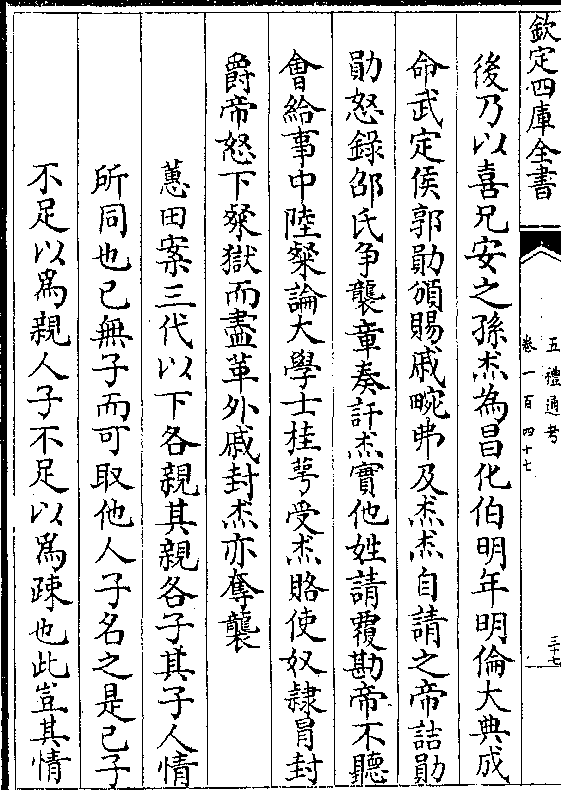 欽定四庫全書
五禮通考
卷一百四十七
三十七
後乃以喜兄安之孫杰為昌化伯明年明倫大典成
命武定侯郭勛頒賜戚畹弗及杰杰自請之帝詰勛
勛怒錄邵氏争襲章奏訐杰實他姓請覆勘帝不聽
會給事中陸粲論大學士桂萼受杰賂使奴隷冐封
爵帝怒下粲獄而盡革外戚封杰亦奪襲
蕙田案三代以下各親其親各子其子人情
所同也已無子而可取他人子名之是已子
不足以為親人子不足以為疎也此豈其情